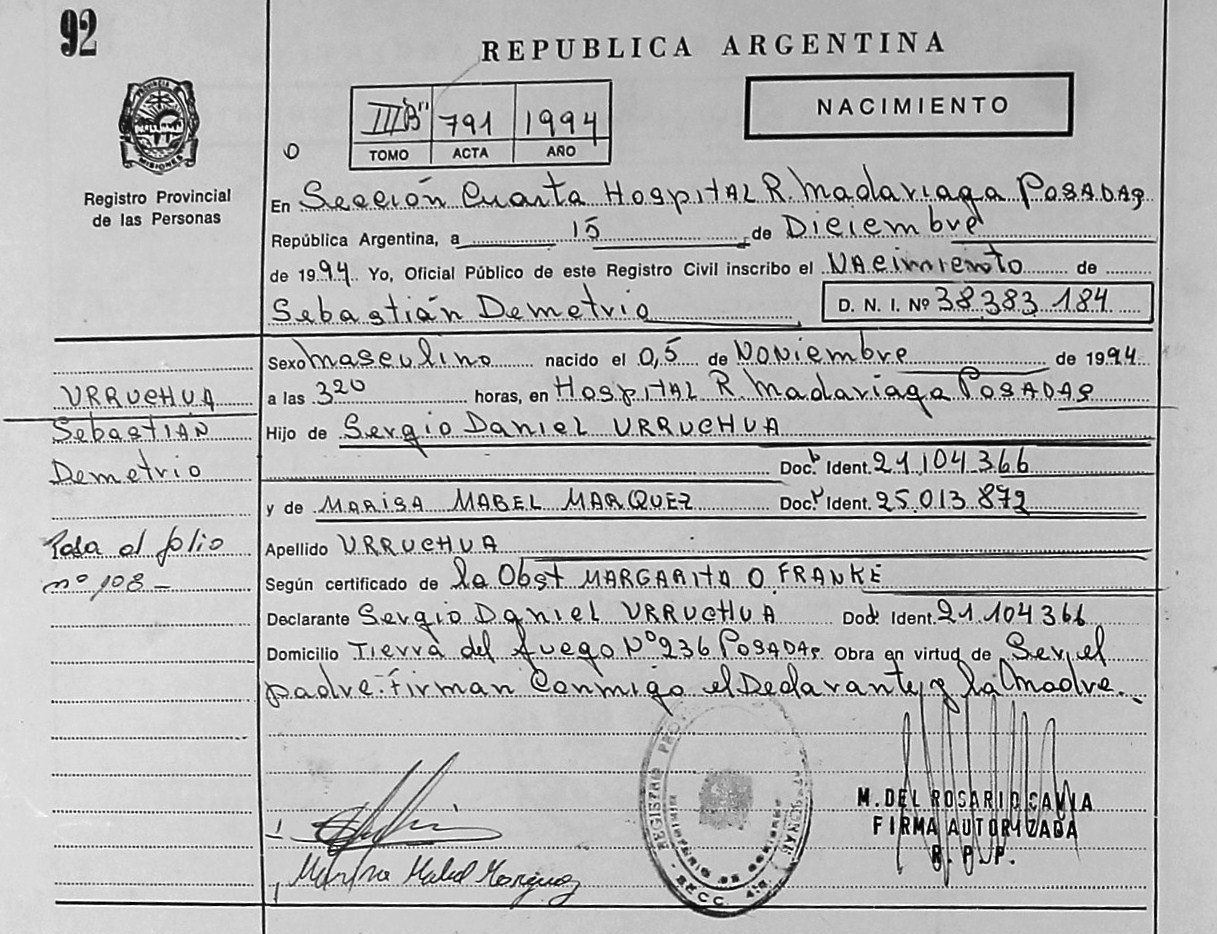 92
REPUBLICA ARGENTINA
NACIMIENTO
III "B" 791 1994
TOMO ACTA AÑO
MISIONES
Registro Provincial
de las Personas
En Sección Cuarta Hospital R. Madariaga Posadas
República Argentina, a 15 de Diciembre
de 1994. Yo, Oficial Público de este Registro Civil inscribo el Nacimiento de
Sebastián Demetrio D. N. I. Nº 38.383.184
Sexo masculino nacido el 05 de Noviembre de 1994
a las 320 horas, en Hospital R Madariaga Posadas
Hijo de Sergio Daniel URRUCHUA
Doc. Ident. 21.104.366
y de MARISA MABEL MARQUEZ Doc. Ident. 25.013.872
Apellido URRUCHUA
Según certificado de la Obst MARGARITA O FRANKE
Declarante Sergio Daniel URRUCHUA Doc. Ident. 21.104366
Domicilio Tierra del fuego Nº 236 Posadas. Obra en virtud de Ser el
padre. Firman Conmigo el Declarante y la Madre.
URRUCHUA
Sebastián
Demetrio
Pasa al folio
nº 108-
REGISTRO
MINISTERIO DE GOBIERNO
SECC. 4ª
M. DEL ROSARIO
FIRMA AUTORIZADA
R. P. P.
Mabel Marquez